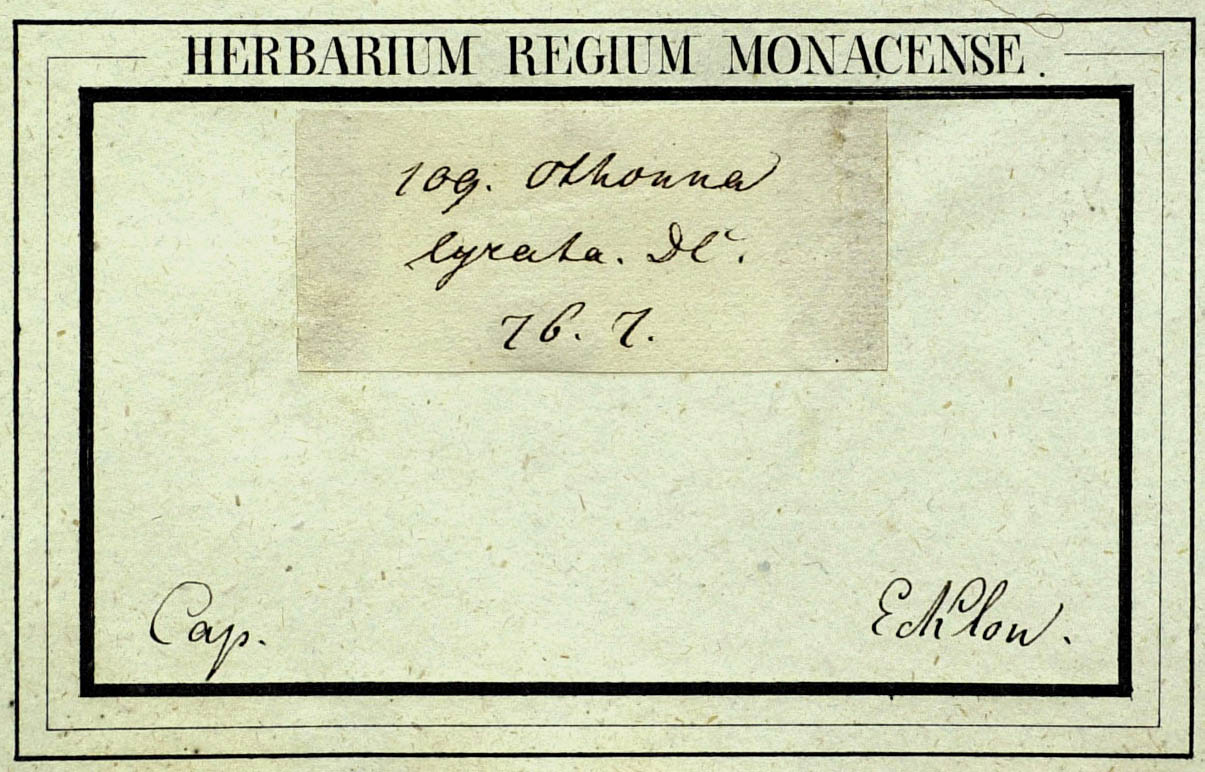 HERBARIUM REGIUM MONACENSE.
109. Othonna
lyrata. DC.
76. 7.
Cap.
Ecklon.